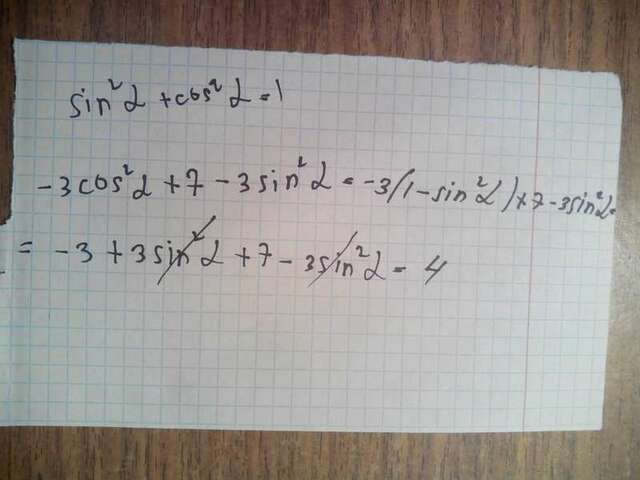 sin²α + cos²α = 1
-3cos²α + 7 - 3sin²α = -3(1 - sin²α) + 7 - 3sin²α =
= -3 + 3sin²α + 7 - 3sin²α = 4